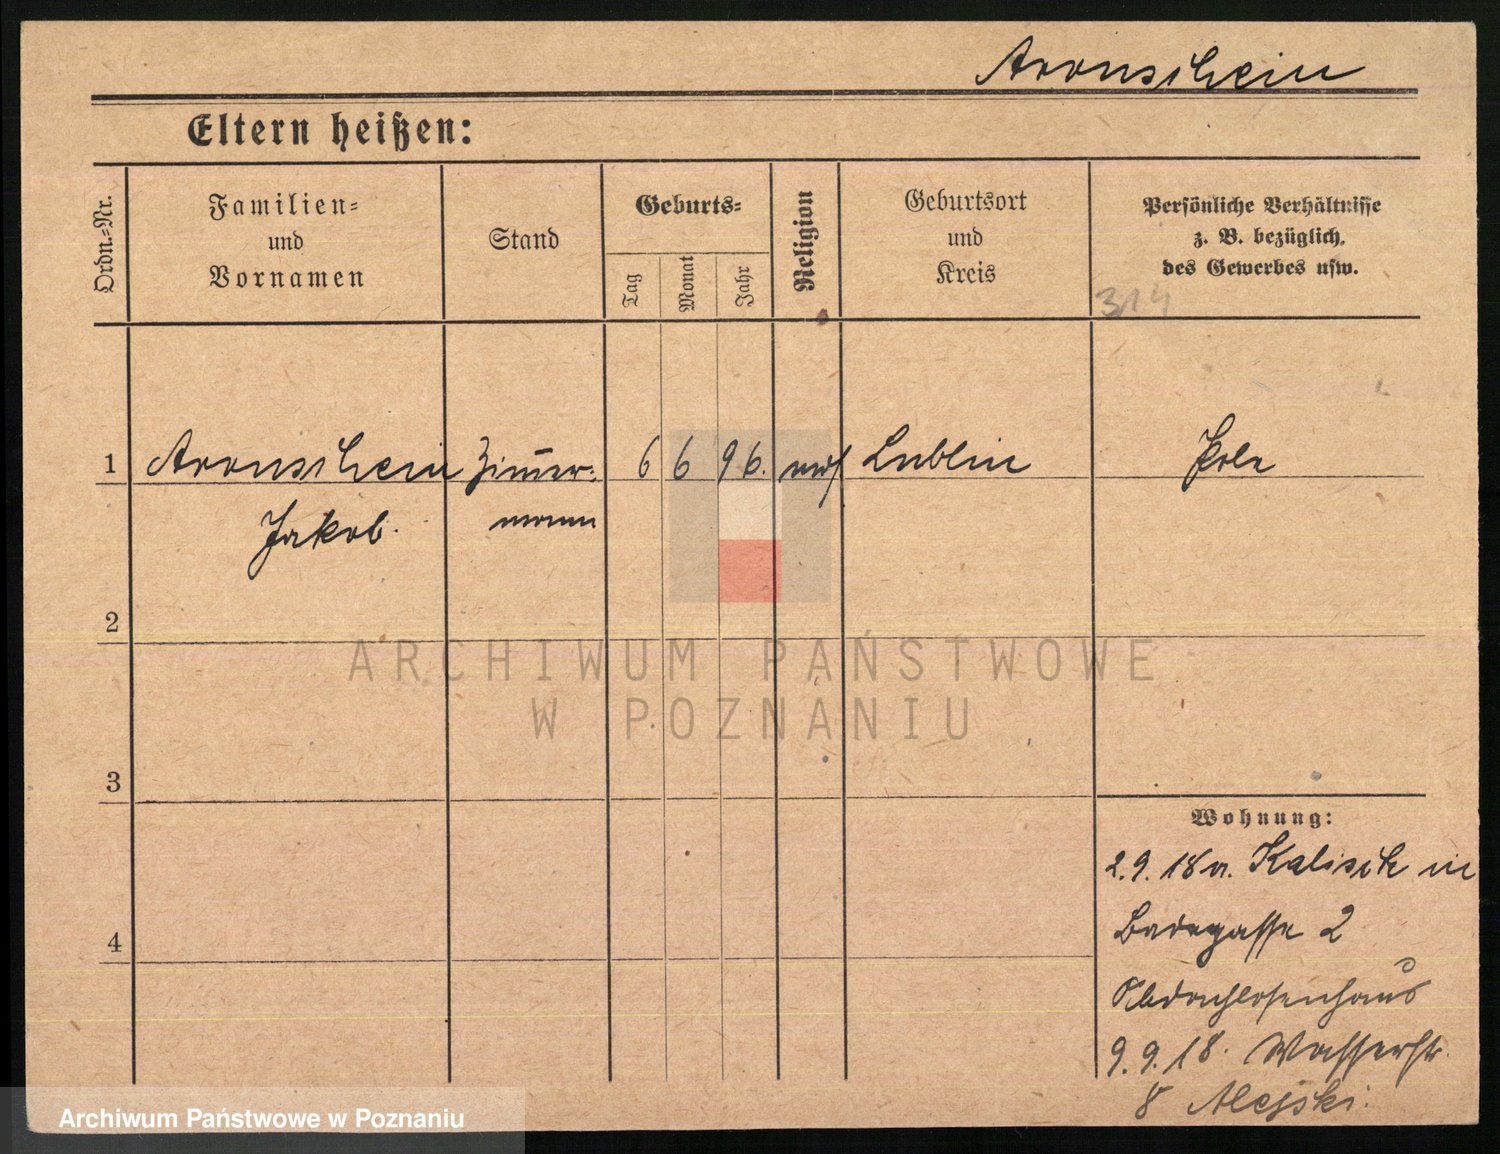 Aronschein
Eltern heißen:
Ordn.-Nr.
Familien-
und
Vornamen
Stand
Geburts-
Tag
Monat
Jahr
Religion
Geburtsort
und
Kreis
Persönliche Verhältnisse
z. B. bezüglich
des Gewerbes usw.
314
1 Aronschein Zimmer- 6 6 96. mos Lublin Pole
Jakob. mann
2
ARCHIWUM PAŃSTWOWE
W POZNANIU
3
Wohnung:
2.9.18 v. Kalisch in
Badegasse 2
4
Obdachlosenhaus
9.9.18. Wasserstr.
8 Alejski.
Archiwum Państwowe w Poznaniu